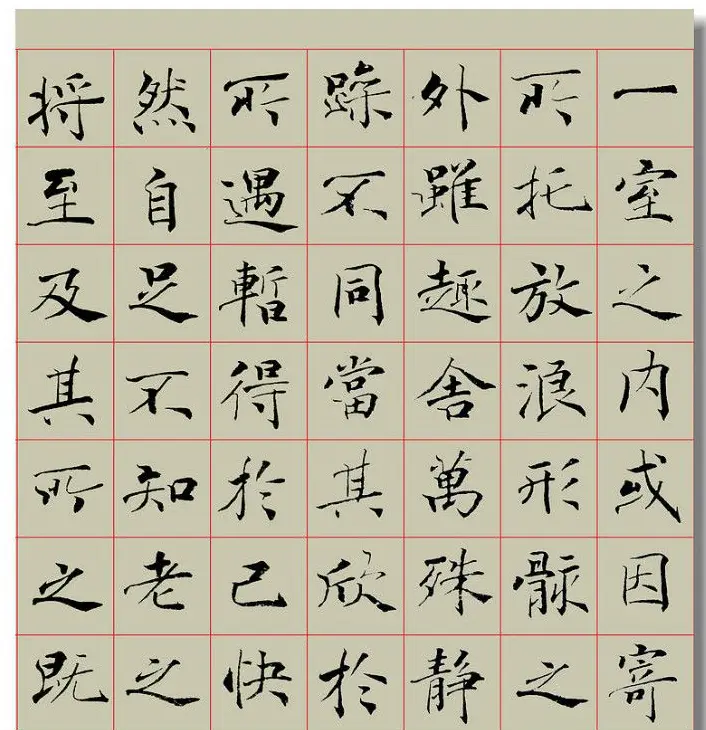 一室之内或因寄
所托放浪形骸之
外雖趣舍萬殊静
躁不同當其欣於
所遇暫得於己快
然自足不知老之
将至及其所之既